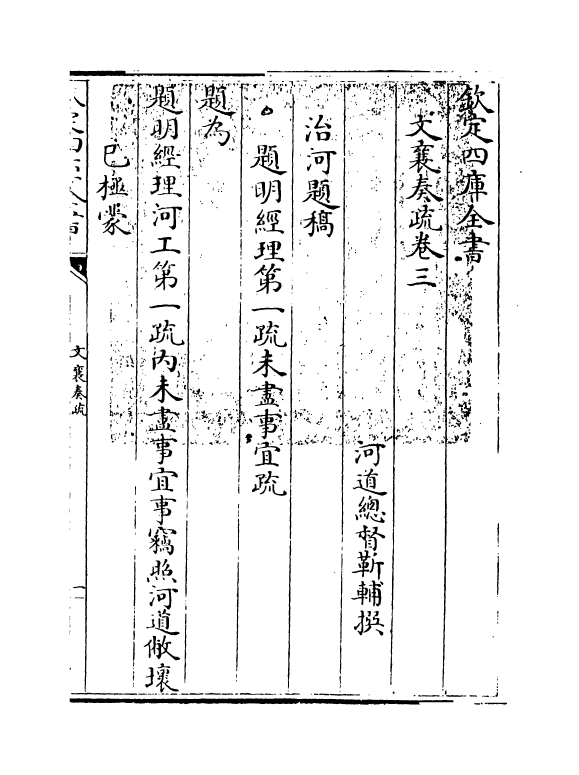 欽定四庫全書
文襄奏疏卷三
河道總督靳輔撰
治河題稿
題明經理第一疏未盡事宜疏
題為
題明經理河工第一疏内未盡事宜事竊照河道敝壞
已極蒙
文襄奏疏
一